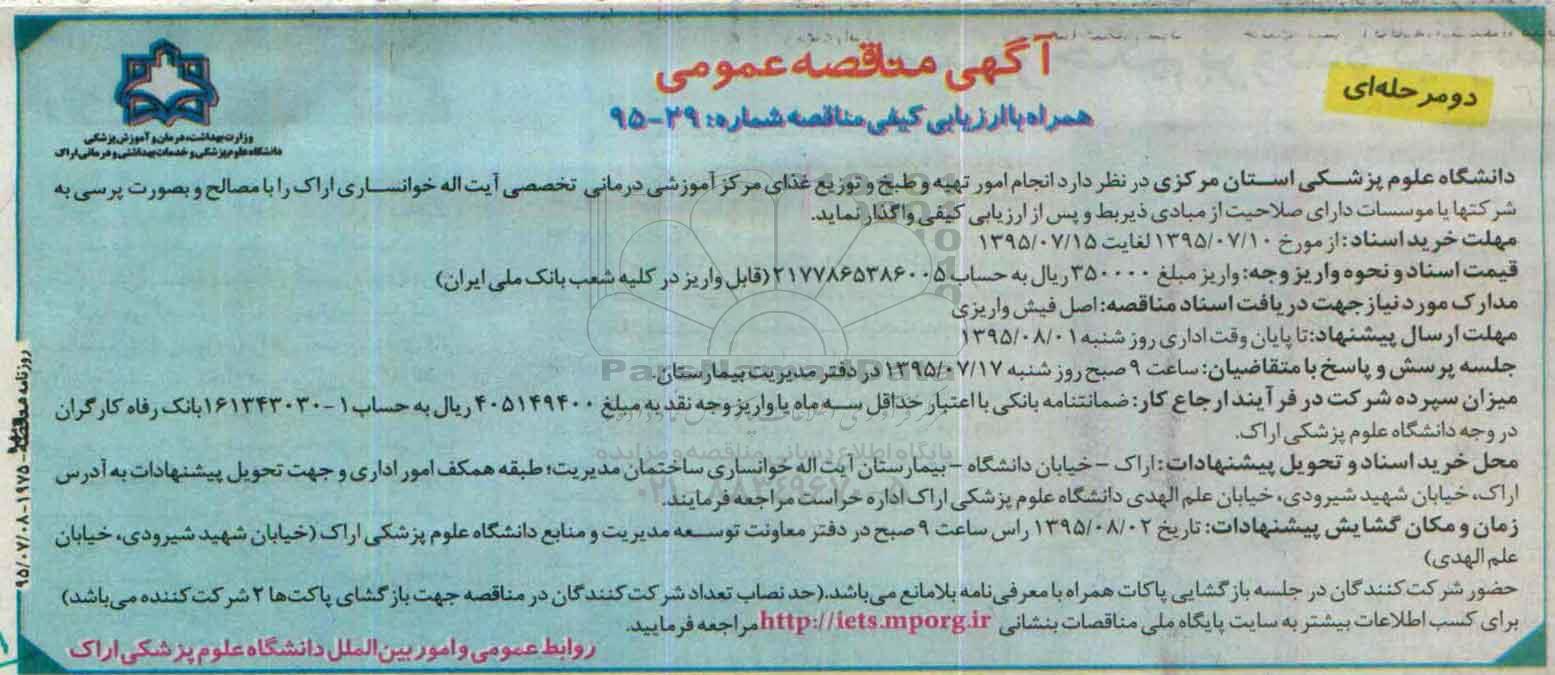 آگهی مناقصه عمومی
دومرحله‌ای
همراه با ارزیابی کیفی مناقصه شماره: ۲۹-۹۵
وزارت بهداشت، درمان و آموزش پزشکی
دانشگاه علوم پزشکی و خدمات بهداشتی و درمانی اراک
دانشگاه علوم پزشـکی اسـتان مرکزی در نظر دارد انجام امور تهیه و طبخ و توزیع غذای مرکز آموزشی درمانی تخصصی آیت اله خوانساری اراک را با مصالح و بصورت پرسی به
شرکتها یا موسسات دارای صلاحیت از مبادی ذیربط و پس از ارزیابی کیفی واگذار نماید.
مهلت خرید اسناد: از مورخ ۱۳۹۵/۰۷/۱۰ لغایت ۱۳۹۵/۰۷/۱۵
قیمت اسناد و نحوه واریز وجه: واریز مبلغ ۳۵۰۰۰۰ ریال به حساب ۲۱۷۷۸۶۵۳۸۶۰۰۵ (قابل واریز در کلیه شعب بانک ملی ایران)
مدارک مورد نیاز جهت دریافت اسناد مناقصه: اصل فیش واریزی
مهلت ارسال پیشنهاد: تا پایان وقت اداری روز شنبه ۱۳۹۵/۰۸/۰۱
جلسه پرسش و پاسخ با متقاضیان: ساعت ۹ صبح روز شنبه ۱۳۹۵/۰۷/۱۷ در دفتر مدیریت بیمارستان.
میزان سپرده شرکت در فرآیند ارجاع کار: ضمانتنامه بانکی با اعتبار حداقل سـه ماه یا واریز وجه نقد به مبلغ ۴۰۵۱۴۹۴۰۰ ریال به حساب ۱-۱۶۱۳۴۳۰۳۰ بانک رفاه کارگران
در وجه دانشگاه علوم پزشکی اراک.
محل خرید اسناد و تحویل پیشنهادات: اراک - خیابان دانشگاه - بیمارستان آیت اله خوانساری ساختمان مدیریت؛ طبقه همکف امور اداری و جهت تحویل پیشنهادات به آدرس
اراک، خیابان شهید شیرودی، خیابان علم الهدی دانشگاه علوم پزشکی اراک اداره حراست مراجعه فرمایند.
زمان و مکان گشایش پیشنهادات: تاریخ ۱۳۹۵/۰۸/۰۲ راس ساعت ۹ صبح در دفتر معاونت توسـعه مدیریت و منابع دانشگاه علوم پزشکی اراک (خیابان شهید شیرودی، خیابان
علم الهدی)
حضور شرکت کنندگان در جلسه بازگشایی پاکات همراه با معرفی نامه بلامانع می‌باشد.(حد نصاب تعداد شرکت کنندگان در مناقصه جهت بازگشای پاکت‌ها ۲ شرکت کننده می‌باشد)
برای کسب اطلاعات بیشتر به سایت پایگاه ملی مناقصات بنشانی http://iets.mporg.ir مراجعه فرمایید.
روابط عمومی و امور بین‌الملل دانشگاه علوم پزشکی اراک
روزنامه مناقصه - ۱۹۷۵ - ۹۵/۰۷/۰۸
ParsNamadData
پایگاه اطلاع رسانی مناقصه و مزایده